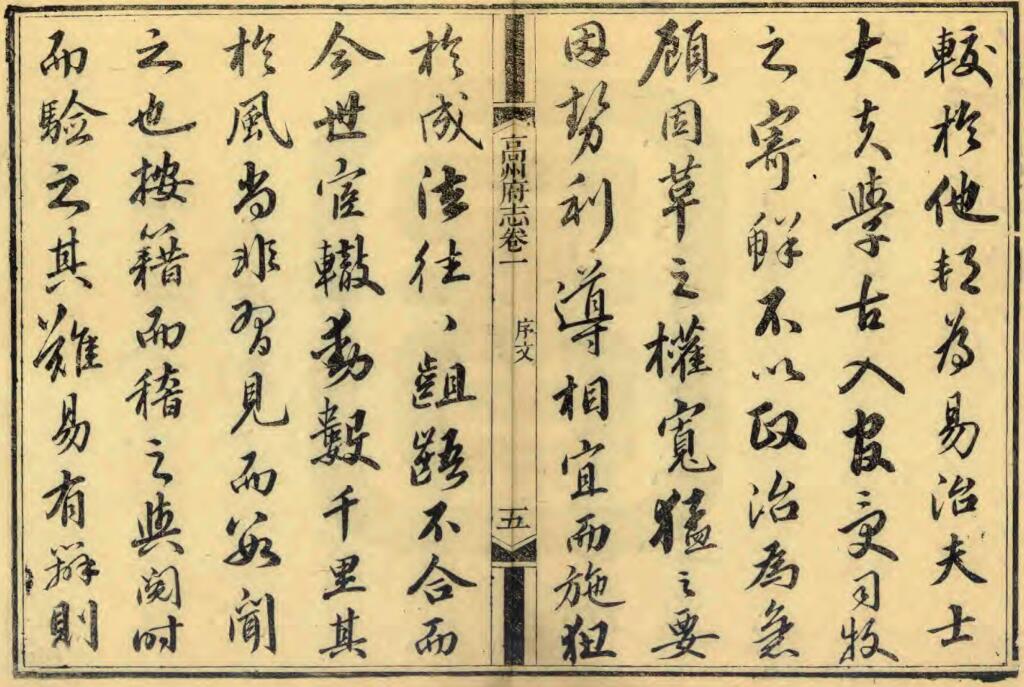 較於他為易治夫士
大夫學古入官受司牧
之寄鮮不以政治為急
顧因革之權寬猛之要
因勢利導相宜而施狃
高州府志卷一
序文
五
於成法往丶齟齬不合而
今世宦轍動數千里其
於風尚非習見而聞
之也按籍而稽之與閱時
而驗之其難易有辨則